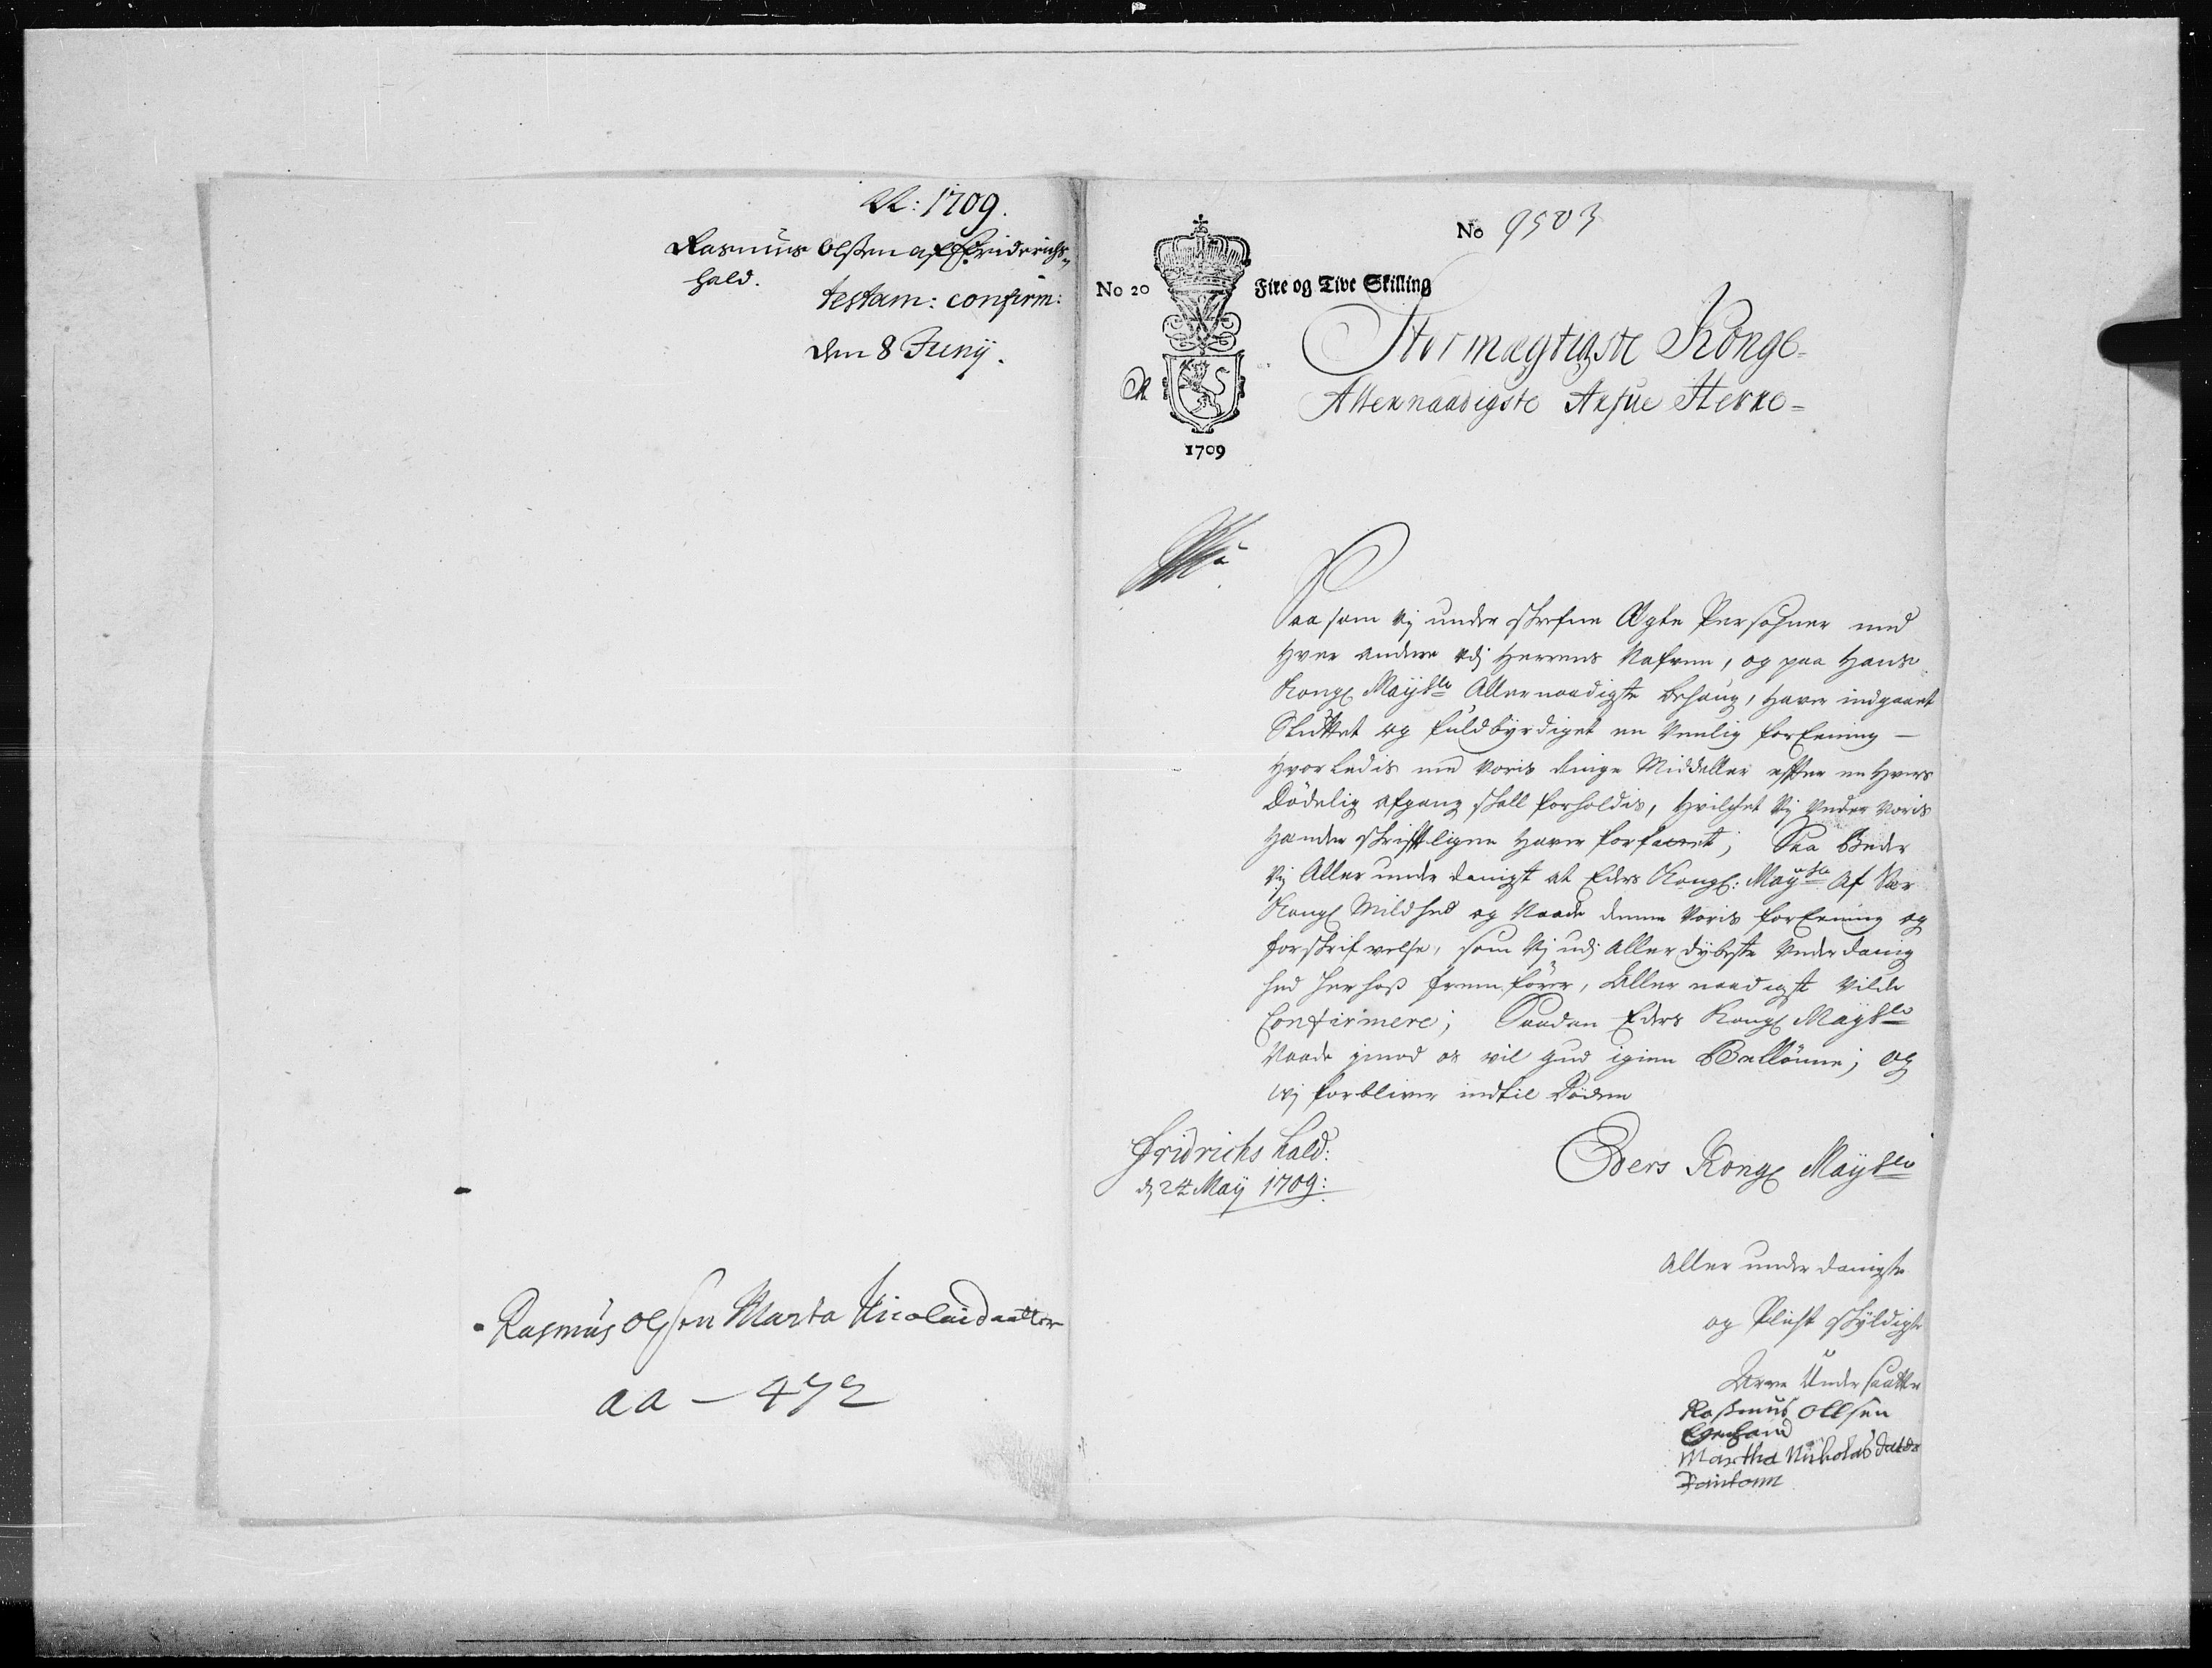 A: 1709.
Rasmus Olsen aff Friderichs-
hald.
testam: confirm:
den 8 Junij.
Rasmus Olsen Marta Nicolaidaatter
aa - 472
No 9503
No 20 Fire og Tive Skilling
1709
Stormægtigste Konge
Allernaadigste Arfue Herre
Saa som Vj under skrefne Ægte Persohner med
hver andere udj Herrens Nafven, og paa Hans
Kongl Mayts Allernaadigste behaug, haver indgaaet
Sluttet og fuldbyrdiget en Venlig forEening
hvorledis med Voris ringe Middeller efter en hvers
Dødelig afgang skall forholdis, hvilchet Vj Under Voris
Hænder skrifftligen haver forfattet; Saa Beder
Vj Aller under danigst at Eders Kongl: Mayts Af Sær
Kongl Mildhed og Naade denne Voris forEening og
forskrifvelse, som Vj udj Aller dybeste Underdanig
hed her hoss fremfører, Aller naadigst Vilde
Confirmere; Saadan Eders Kongl Mayts
Naade imod os vil Gud igien Belønne; og
Vj forbliver indtil Døden
Fridrichshald:
d 24 Maij 1709:
Eders Kongl Mayts
Aller under danigste
og Pligt skyldigste
Arve Undersaatter
Rasmus Ollsen
Egenhand
Martha Nickolasdater